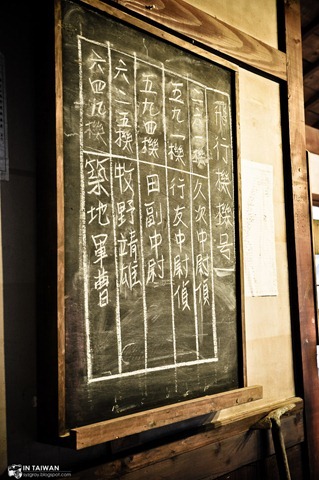 飛行機機号
機 久次中尉偵
五九一機 行友中尉偵
五九四機 田副中尉
六二五機 牧野靖雄
六四九機 築地軍曹
IN TAIWAN